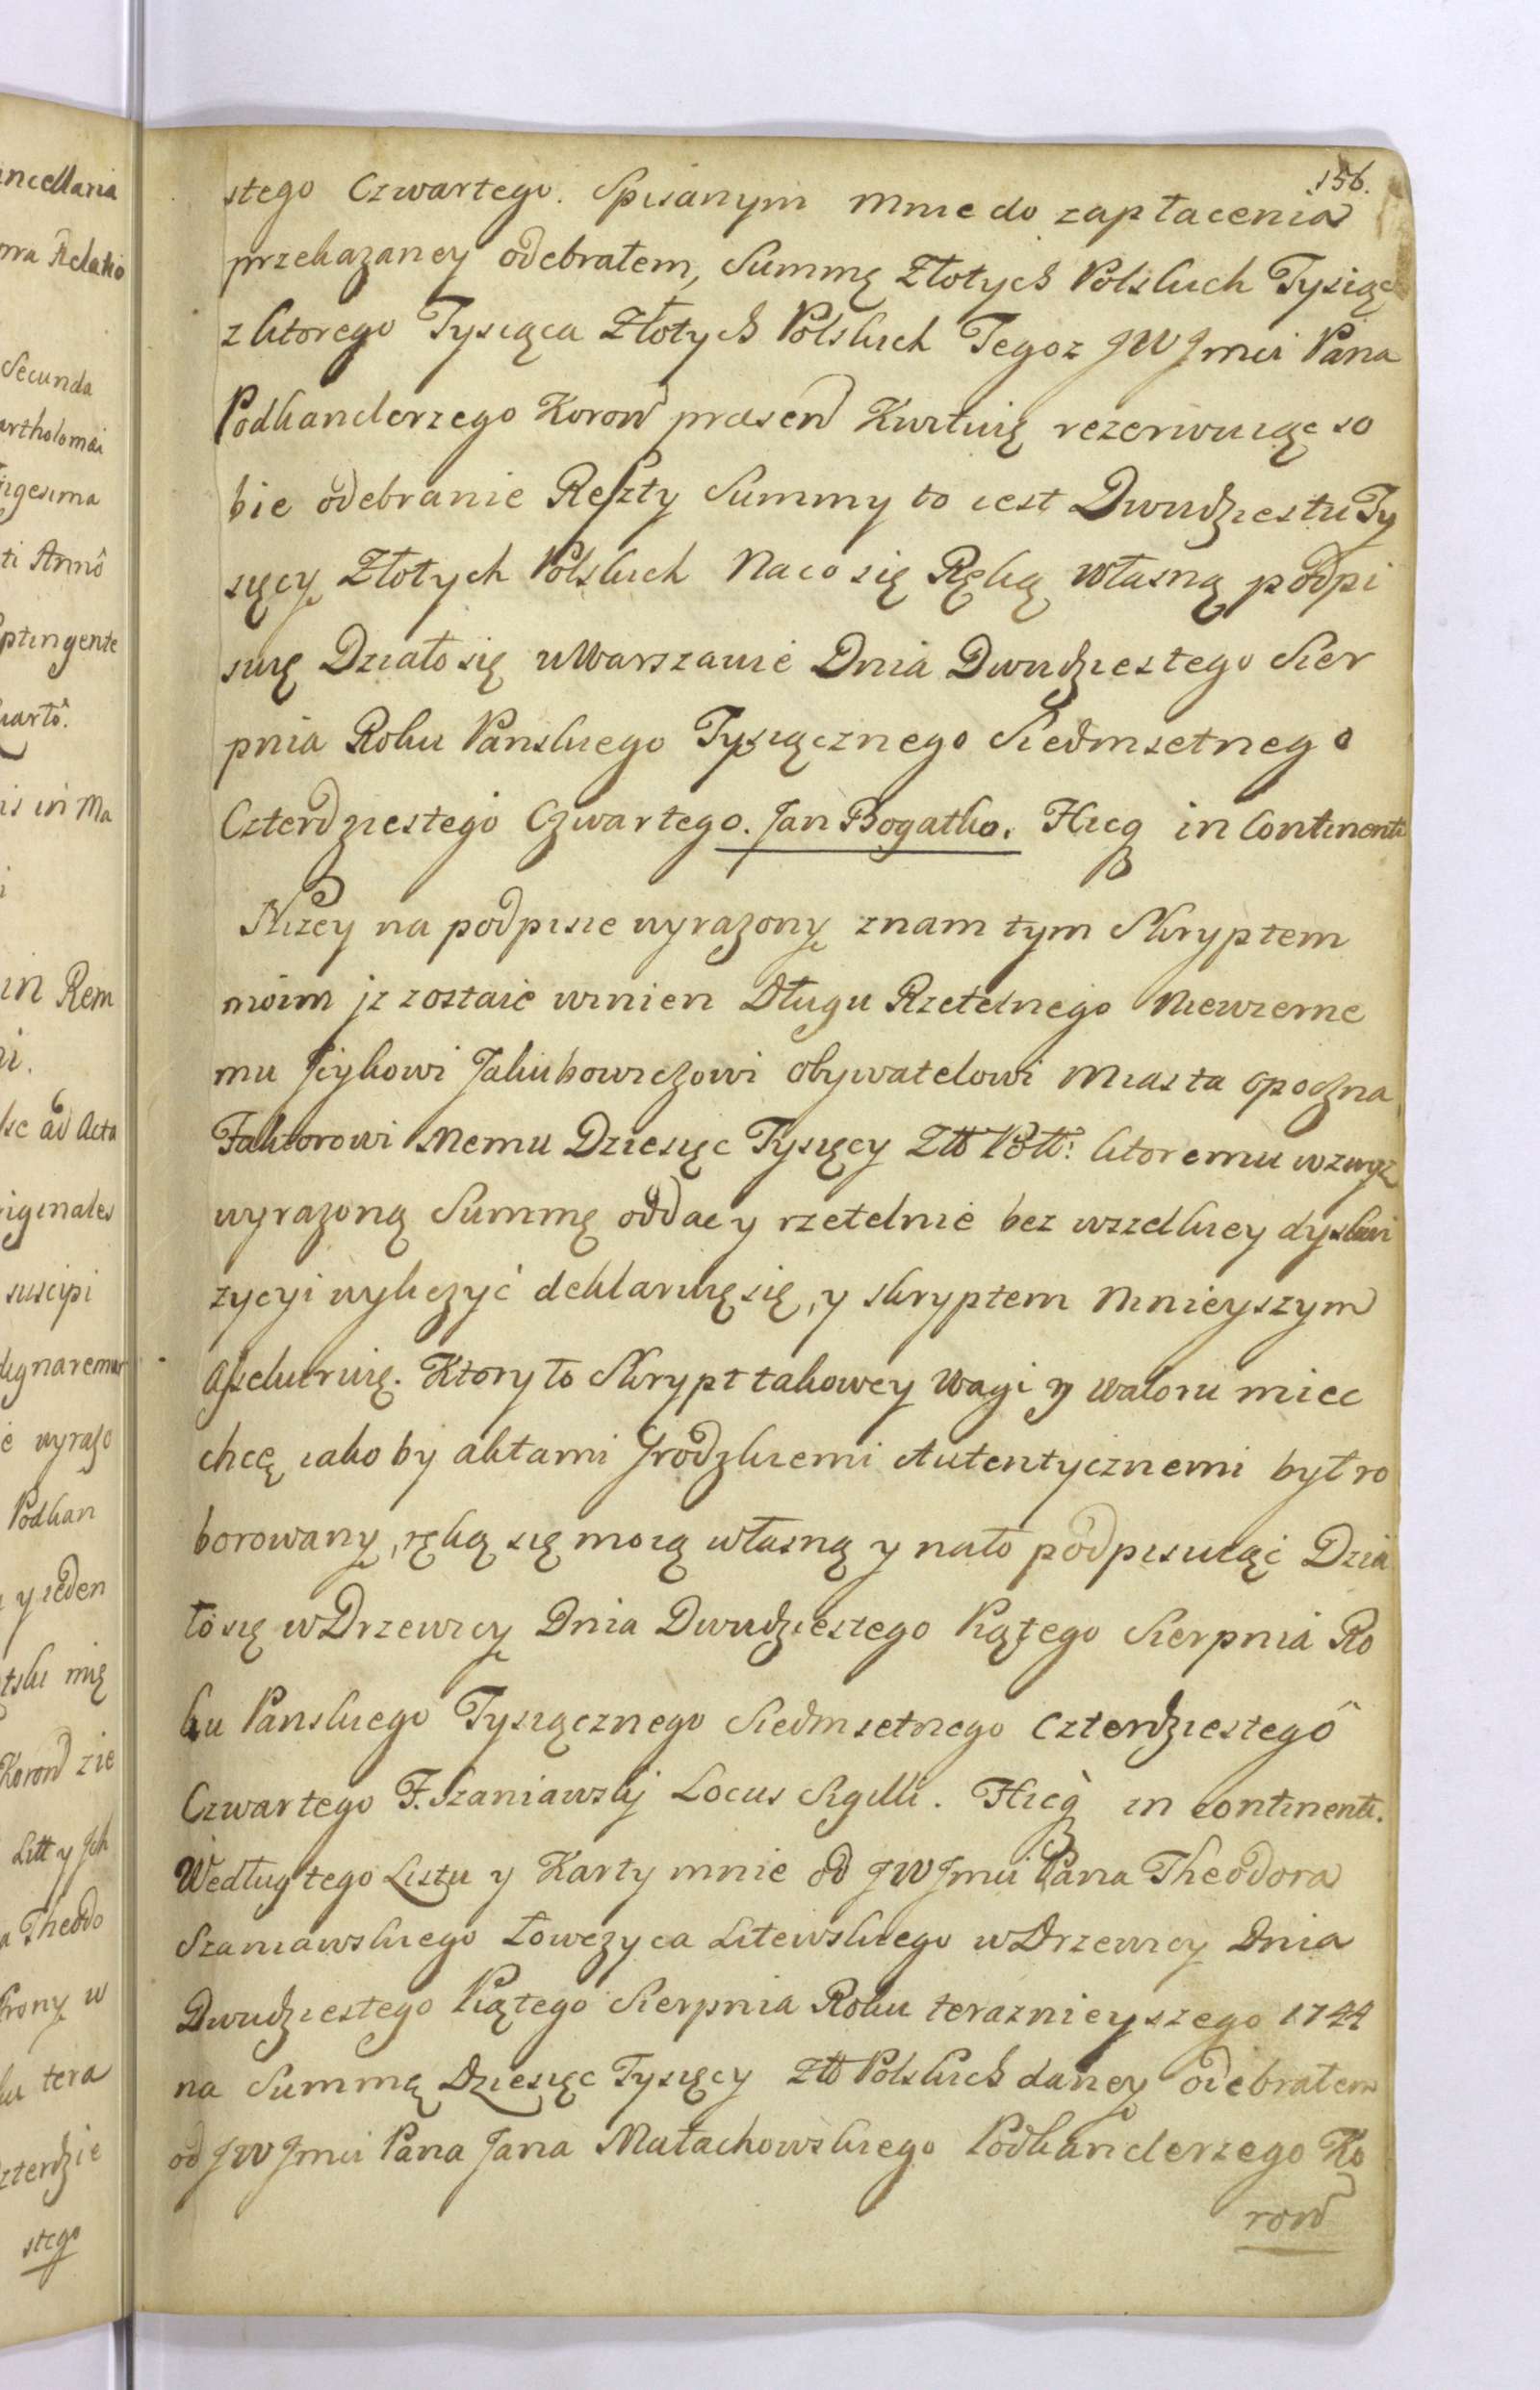 156.
stego Czwartego. Spisanym mnie do zapłacenia
przekazaney odebrałem, Summę Złotych Polskich Tysiąc
z ktorego Tysiąca Złotych Polskich Tegoz JW Jmci Pana
Podkanclerzego Koron præsen Kwituię rezerwuiąc so
bie odebranie Reszty Summy to iest Dwudziestu Ty
sięcy Złotych Polskich Na co się Ręką własną podpi
suię Działo się w Warszawie Dnia Dwudziestego Sier
pnia Roku Panskiego Tysiącznego Siedmsetnego
Czterdziestego Czwartego. Jan Bogatko. Hicq in Continenti
Nizey na podpisie wyrazony znam tym Skryptem
moim jz zostaie winien Długu Rzetelnego Niewierne
mu Jcykowi Jakubowiczowi obywatelowi Miasta Opoczna
Faktorowi Memu Dziesięc Tysięcy Złł Pολł: ktoremu wzwyz
wyrazoną Summę oddac y rzetelnie bez wszelkiey dyskwi
zycyi wyliczyć deklaruię się, y skryptem Mnieyszym
assekuruię. Ktory to Skrypt takowey Wagi y waloru miec
chcę iako by aktami Grodzkiemi Autentycznemi był ro
borowany, ręką się moią własną y na to podpisuiąc Dzia
ło się w Drzewicy Dnia Dwudziestego Piątego Sierpnia Ro
ku Panskiego Tysiącznego Siedmsetnego Czterdziestego
Czwartego F. Szaniawskj Locus Sigilli. Hicq in continenti.
Według tego Listu y Karty mnie od JW Jmci Pana Theodora
Szaniawskiego Łowczyca Litewskiego w Drzewicy Dnia
Dwudziestego Piątego Sierpnia Roku teraznieyszego 1744
na Summę Dziesięc Tysięcy Złł Polskich daney odebrałem
od JW Jmci Pana Jana Małachowskiego Podkanclerzego Ko
ron